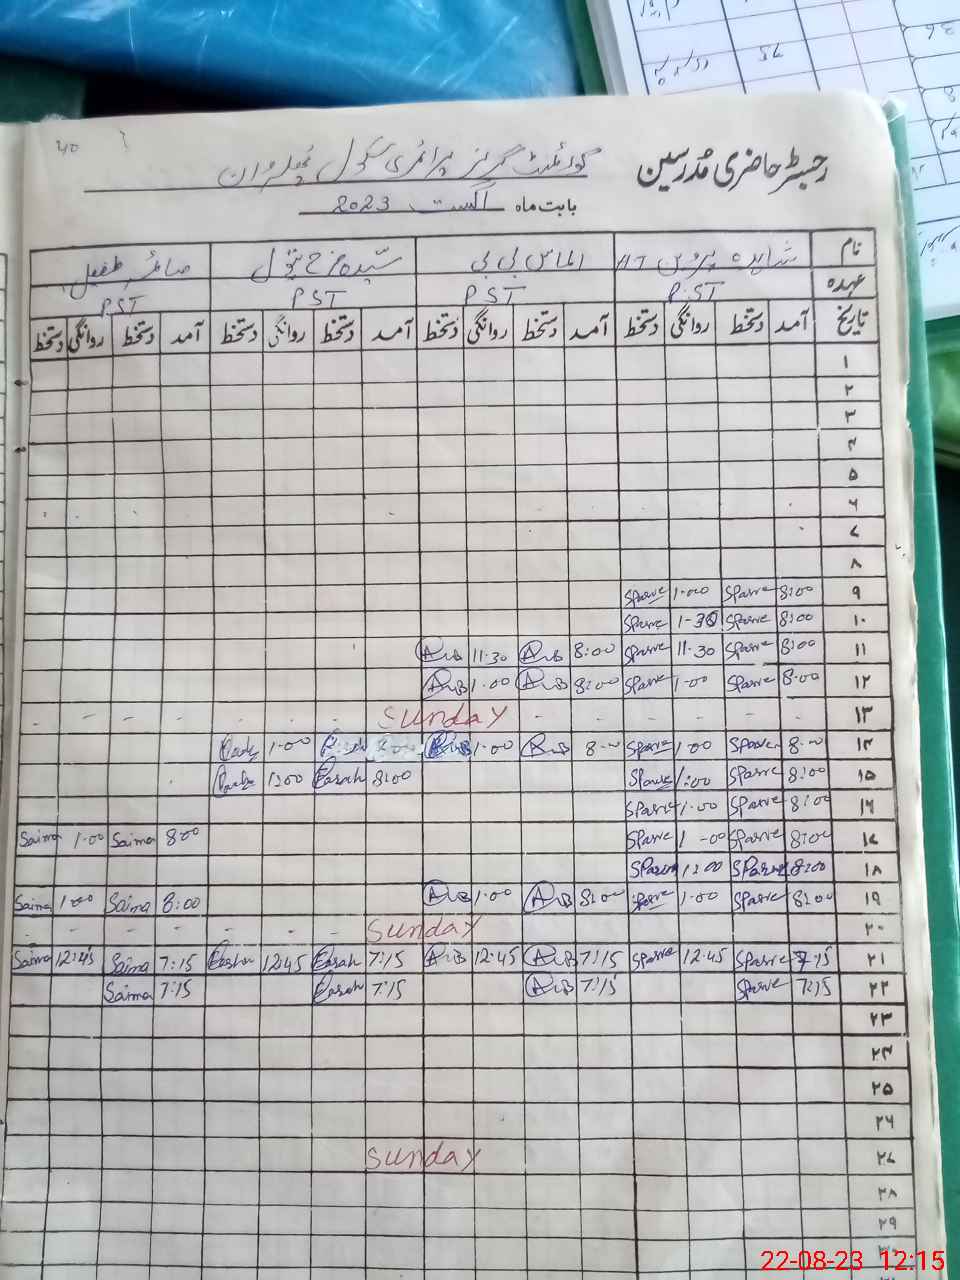 40
رجسٹر حاضری مُدرسین گورنمنٹ گرلز پرائمری سکول
بابت ماہ اگست 2023
نام شاہدہ پروین HT الماس بی بی سیّدہ فرح بتول صائمہ طفیل
عہدہ P.ST P ST P ST P.ST
تاریخ آمد دستخط روانگی دستخط آمد دستخط روانگی دستخط آمد دستخط روانگی دستخط آمد دستخط روانگی دستخط
۱
۲
۳
۴
۵
۶
۷
۸
۹ 8:00 Sparve 1-00 Sparve
۱۰ 8:00 Sparve 1-30 Sparve
۱۱ 8:00 Sparve 11.30 Sparve 8:00 AuB 11.30 AuB
۱۲ 8:00 Sparve 1-00 Sparve 8:00 AuB 1.00 AuB
۱۳ Sunday
۱۴ 8-00 Sparve 1.00 Sparve 8-00 AuB 1.00 AuB 1.00
۱۵ 8:00 Sparve 1:00 Sparve 8:00 Farah 1:00
۱۶ 8:00 Sparve 1.00 Sparve
۱۷ 8:00 Sparve 1-00 Sparve 8:00 Saima 1.00 Saima
۱۸ 8:00 Sparve 1:00 Sparve
۱۹ 8:00 Sparve 1.00 Sparve 8:00 AuB 1.00 AuB 8:00 Saima 1.00 Saima
۲۰ Sunday
۲۱ 7:15 Sparve 12.45 Sparve 7:15 AuB 12.45 AuB 7:15 Farah 12:45 Farah 7:15 Saima 12:45 Saima
۲۲ 7:15 Sparve 7:15 AuB 7:15 Farah 7:15 Saima
۲۳
۲۴
۲۵
۲۶
۲۷ Sunday
۲۸
۲۹
۳۰
22-08-23 12:15